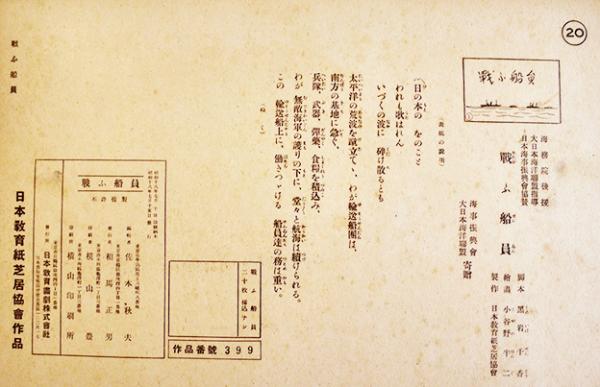 20
戰ふ船員
海務院後援
大日本海洋聯盟指導
日本海事振興會協賛
戰ふ船員
脚本 黒岩千香
繪畫 小谷野半二
製作 日本教育紙芝居協會
海事振興會
大日本海洋聯盟
寄贈
(表紙の說明)
(日の本の をのこと
われも歌はれん
いづくの波に 碎け散るとも
太平洋の荒波を蹴立てゝ、わが輸送船團は、
南方の基地に急ぐ。
兵隊、武器、彈藥、食糧を積込み、
わが無敵海軍の護りの下に、堂々と航海は續けられる。
この 輸送船上に、働きつゞける 船員達の務は重い。
(ぬく)
戰ふ船員
二十枚
作品番號 399
戰ふ船員
不許複製
佐木秋夫
相馬正男
橫山豊
橫山印刷所
日本教育畫劇株式會社
日本教育紙芝居協會作品
戰ふ船員